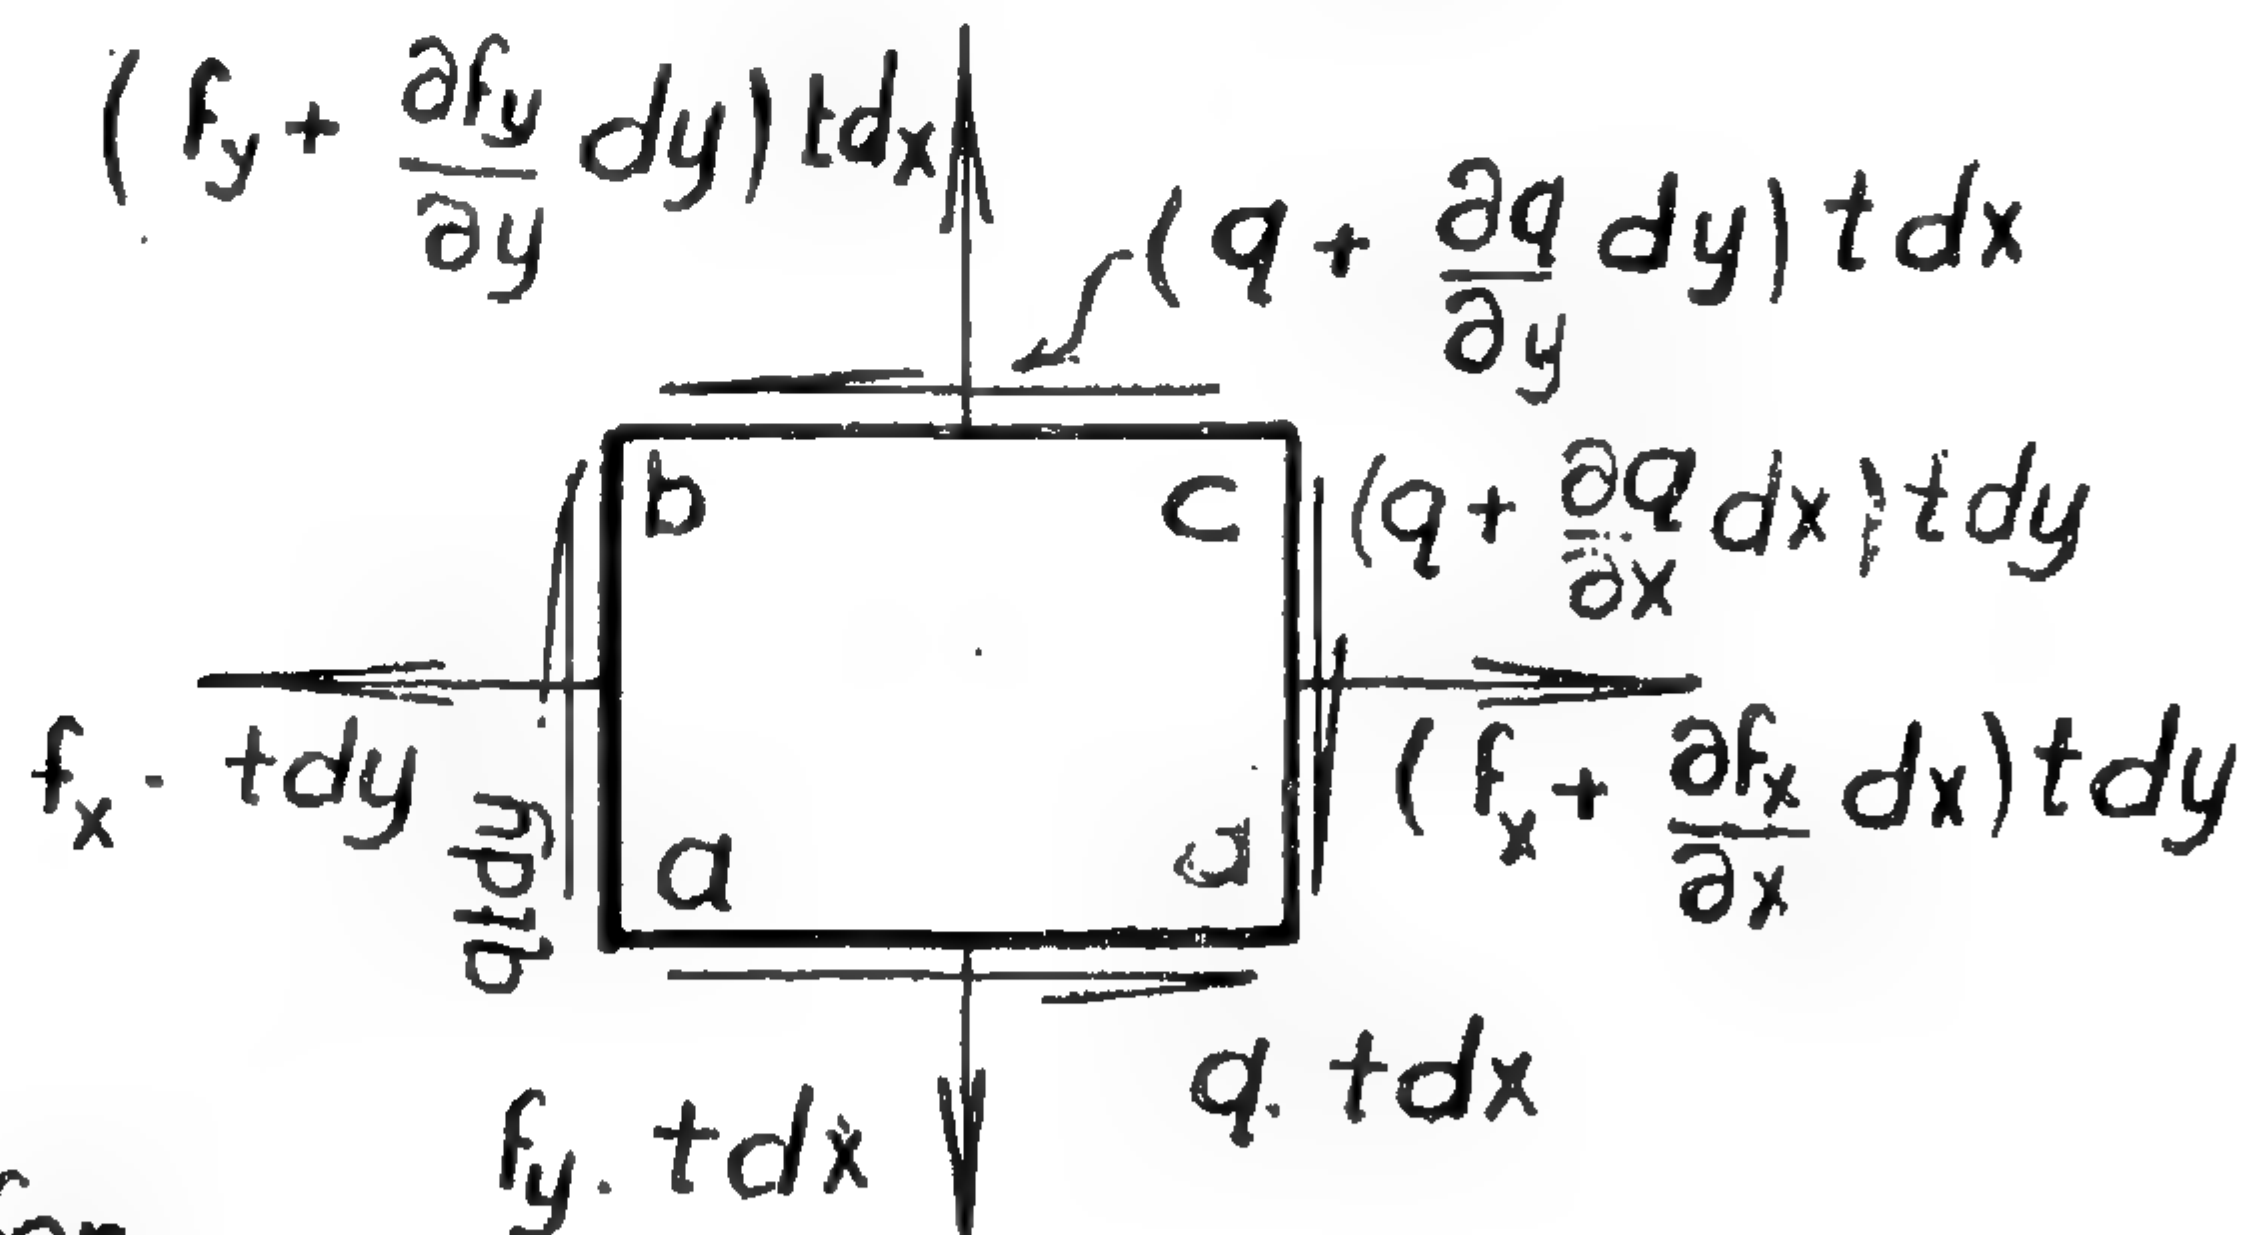 (fy + ∂fy/∂y dy) tdx
(q + ∂q/∂y dy) t dx
b
c
(q + ∂q/∂x dx) t dy
fx · tdy
(fx + ∂fx/∂x dx) t dy
qtdy
a
d
q. tdx
fy. tdx